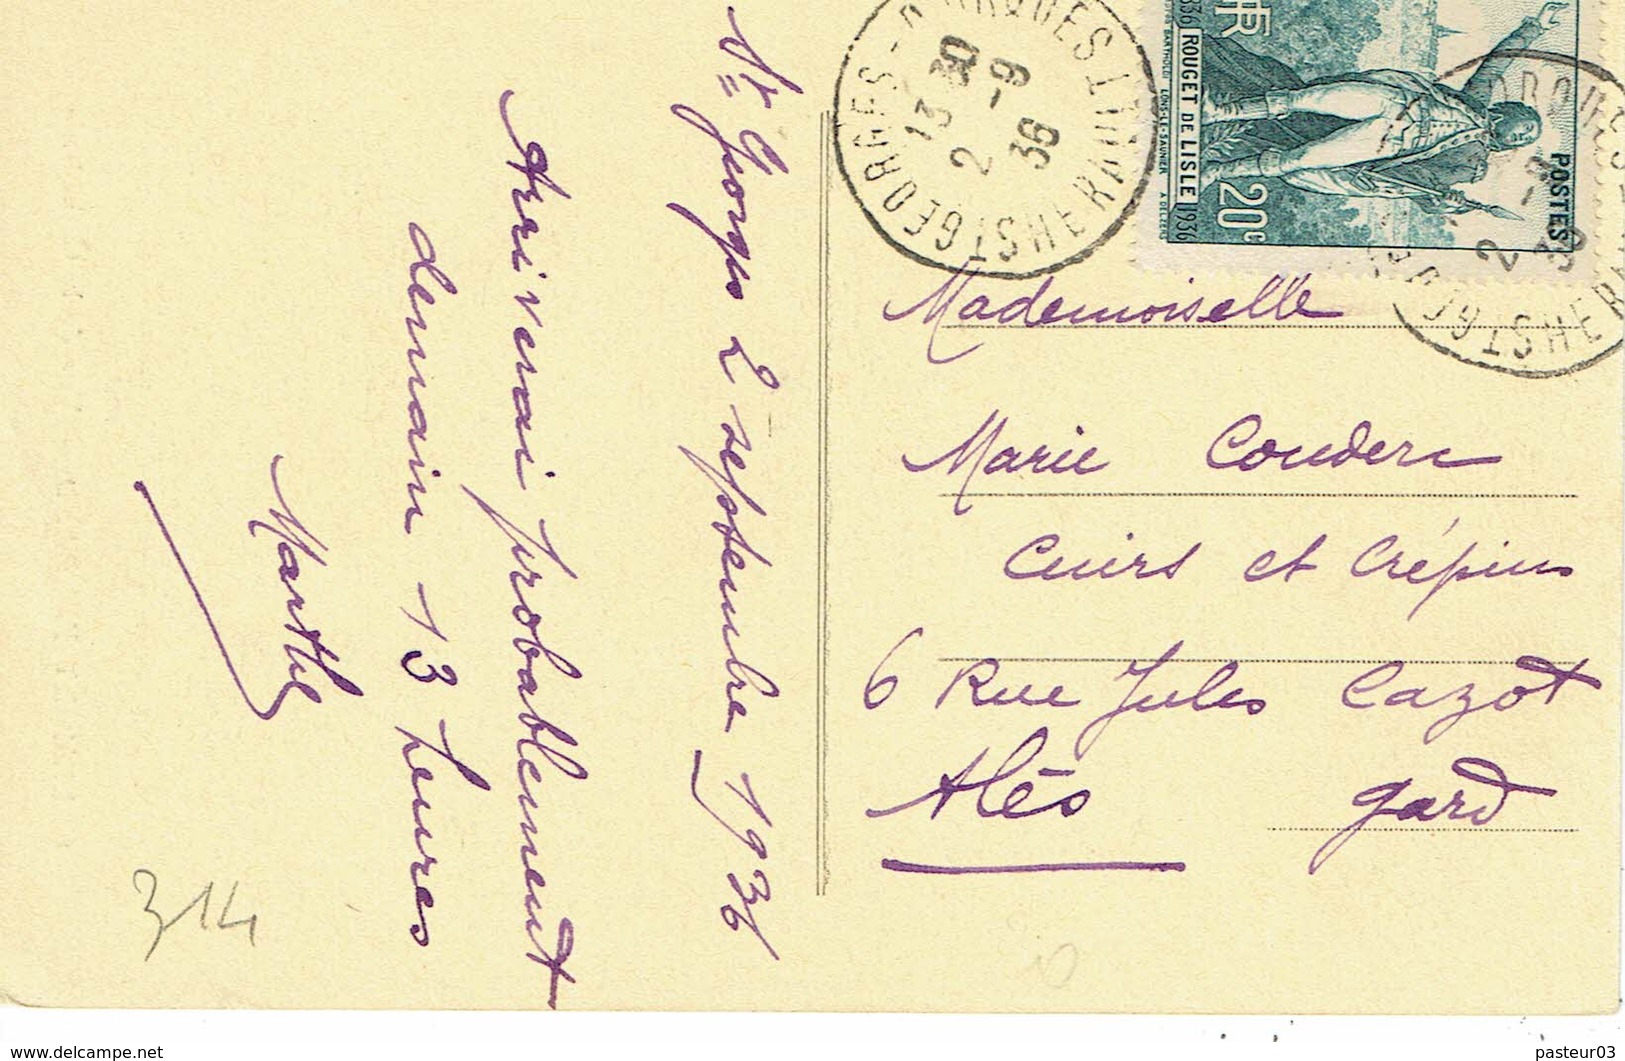 St Georges 2 septembre 1936
Arriverai probablement
demain 13 heures
Marthe
314
ST GEORGES-D'ORQUES HERAULT
13 30
2 -9
36
RF
POSTES
1836 ROUGET DE LISLE 1936
20c
BARTHOLDI LONS-LE-SAUNIER
Mademoiselle
Marie Couderc
Cuirs et Crépins
6 Rue Jules Cazot
Alès Gard
www.delcampe.net
pasteur03